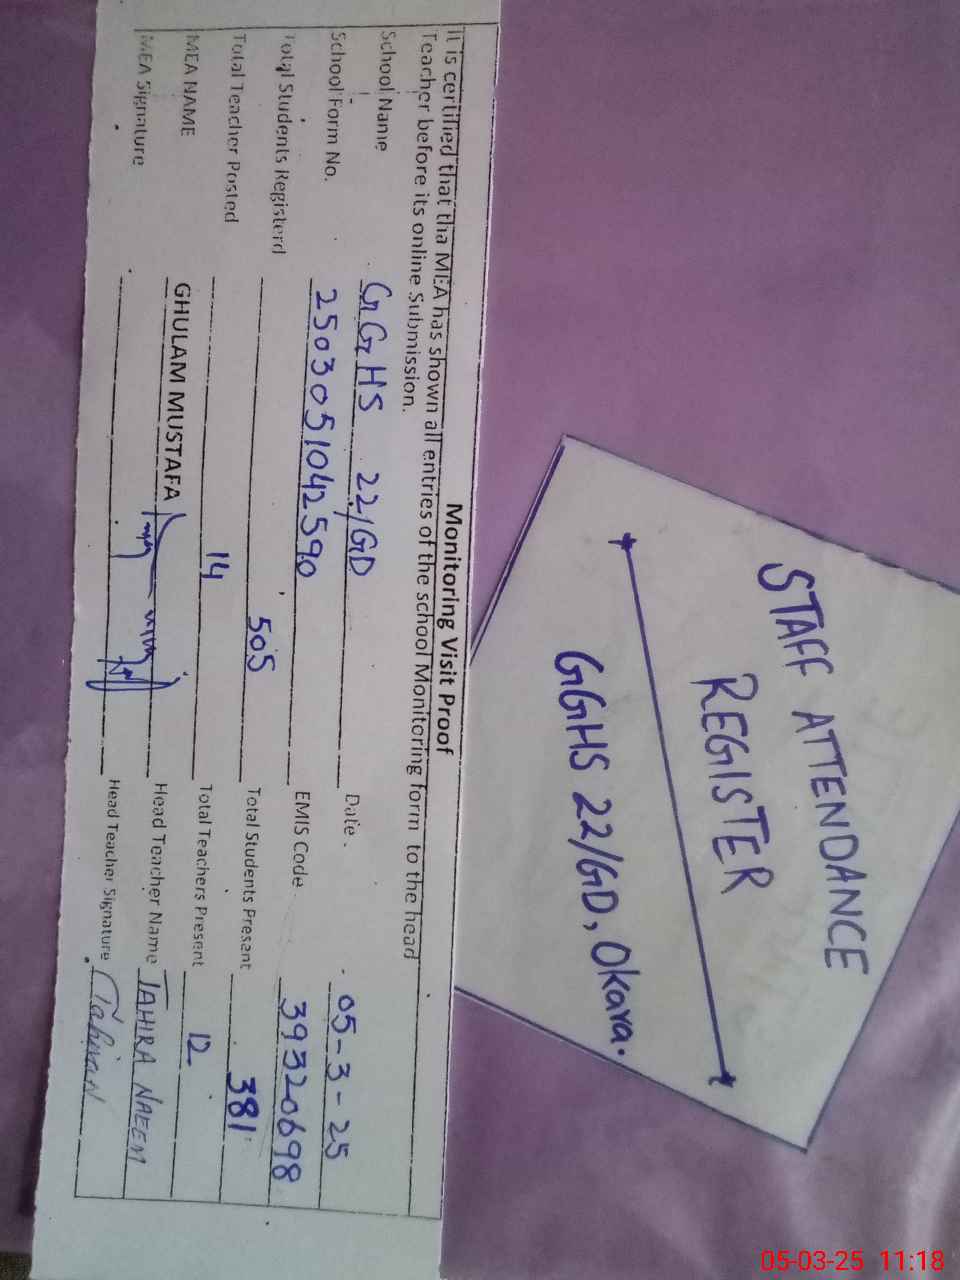 STAFF ATTENDANCE
REGISTER
GGHS 22/GD, Okara.
Monitoring Visit Proof
It is certified that tha MEA has shown all entries of the school Monitoring form to the head
Teacher before its online Submission.
School Name GGHS 22/GD Date 05-3-25
School Form No. 2503051042590 EMIS Code 39320698
Total Students Registerd 505 Total Students Present 381
Total Teacher Posted 14 Total Teachers Present 12
MEA NAME GHULAM MUSTAFA Head Teacher Name TAHIRA NAEEM
MEA Signature Head Teacher Signature
05-03-25 11:18